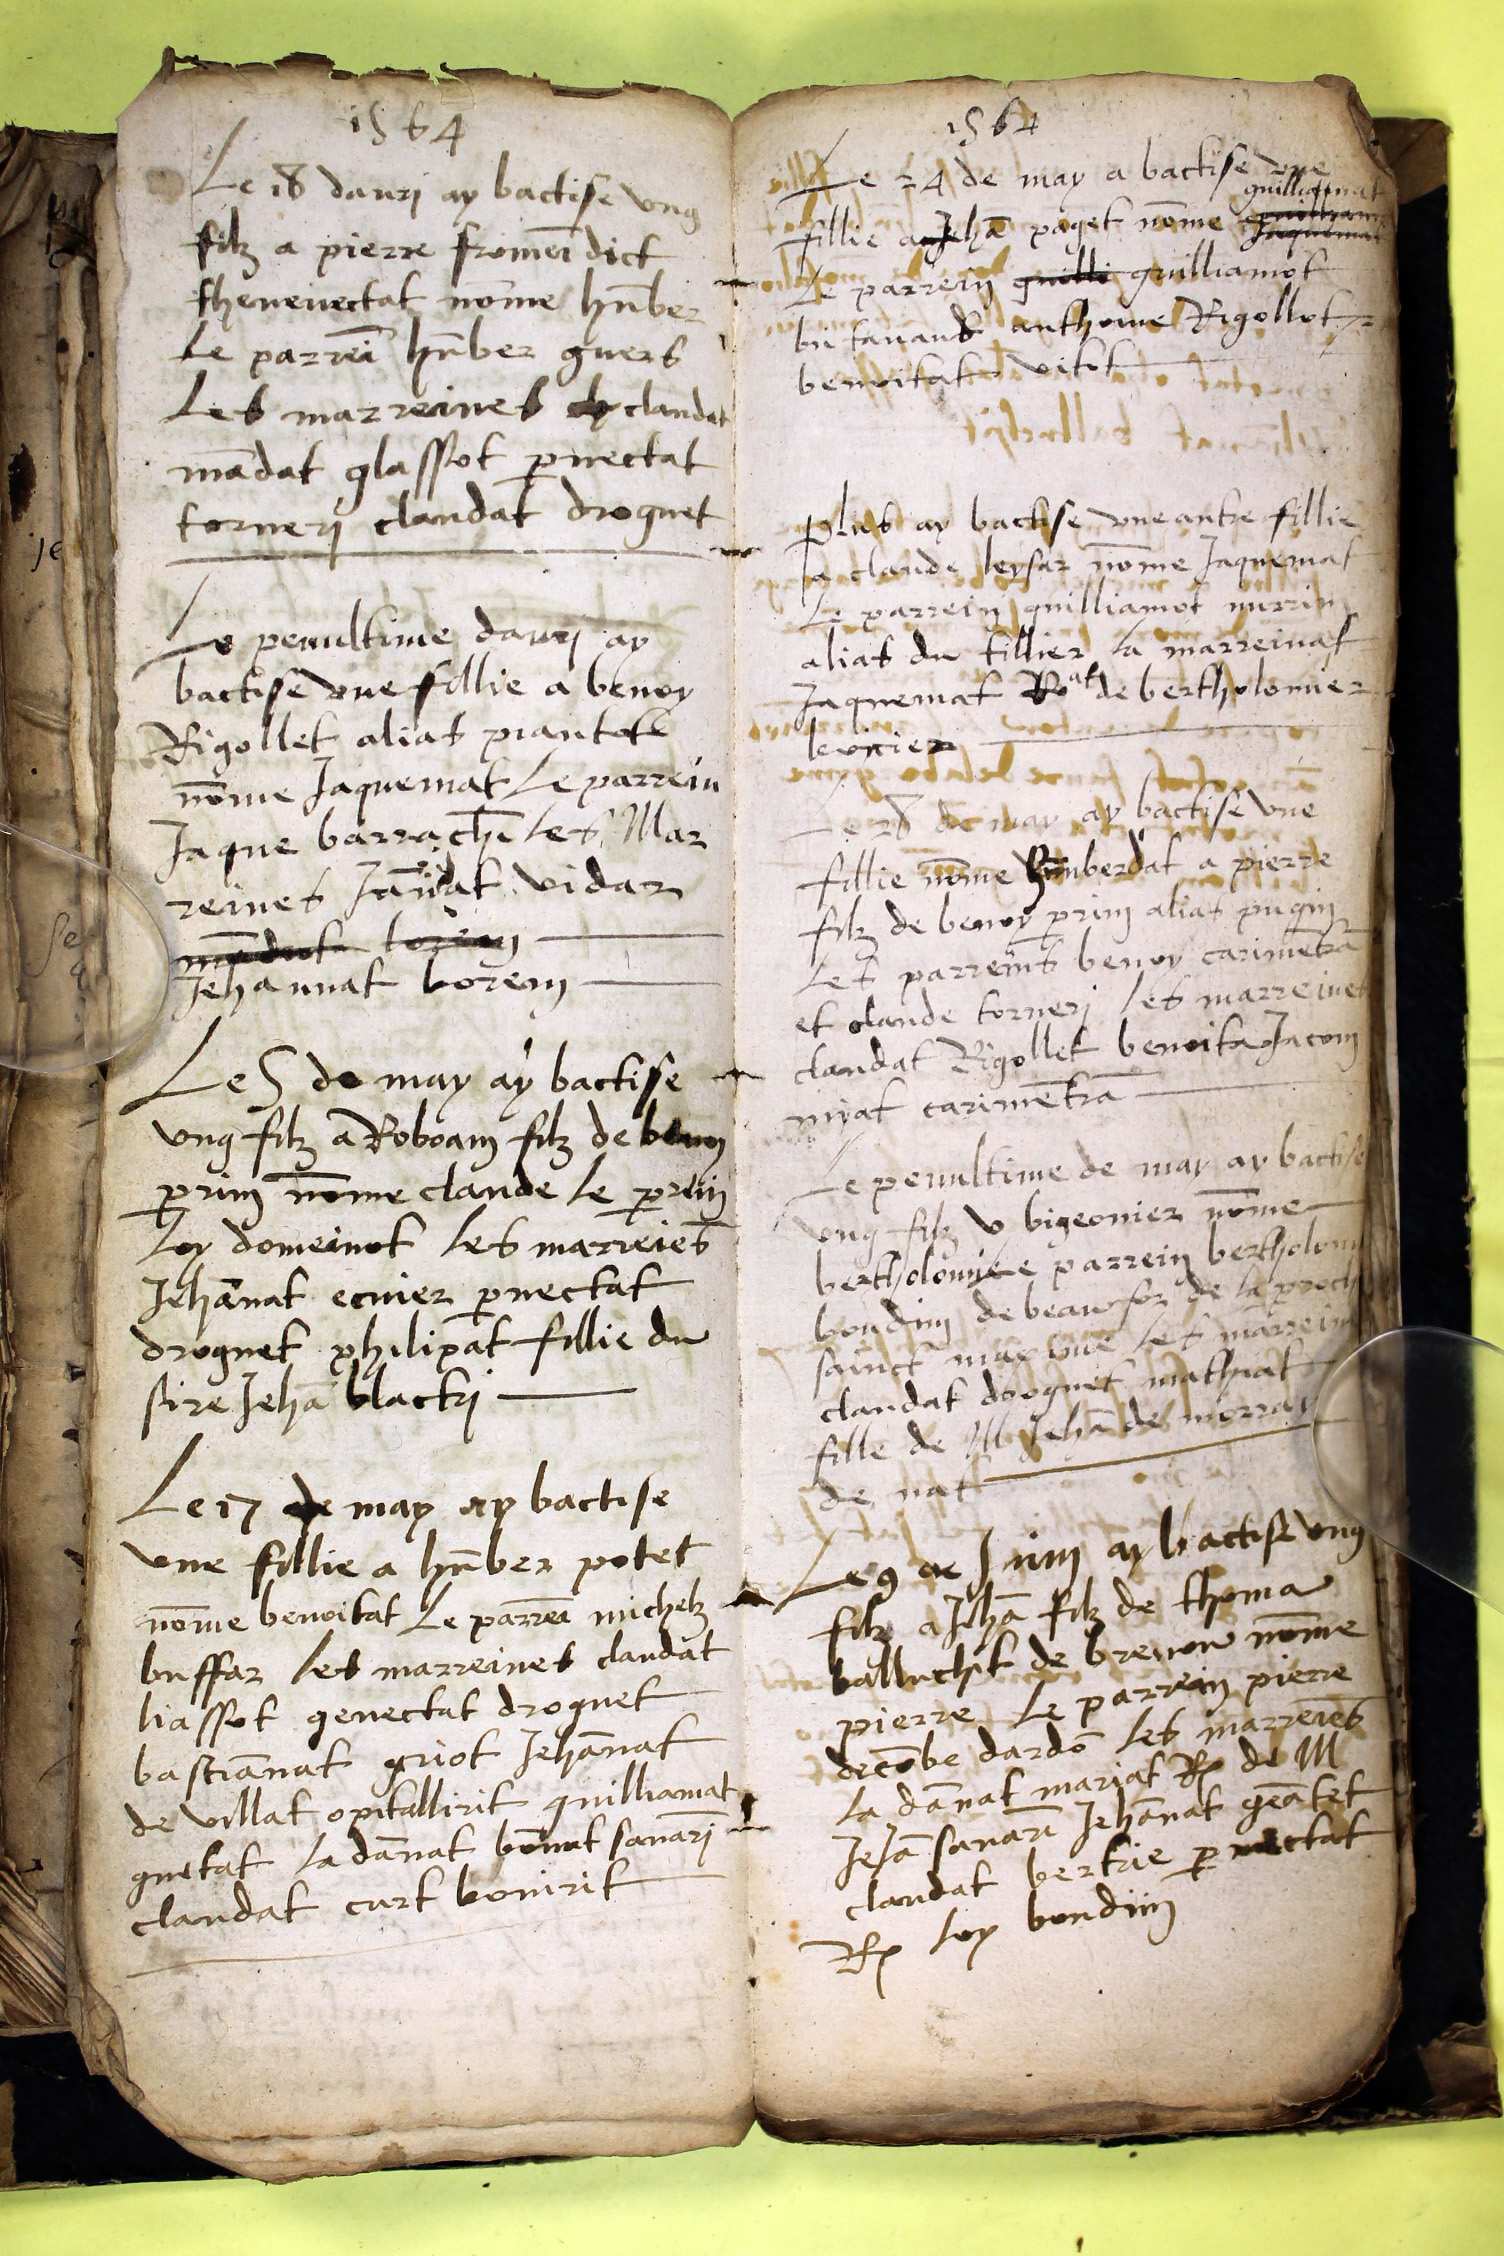 1564
Le 18 dauri ay bactise ung
filz a pierre fromēt dict
thenevectat nōme hūber
Le parreī hūber guers
Les marreines claudat
mādat glassot pnectat
torneri claudat droguet
Le penultime dauri ay
bactise vne fillie a benoy
Rigollet alias piantet
nōme Jaquemat Le parrein
Jaque barrachī Les Mar
reines Jāndat vidar
Jehannat borem
Le 5 de may ay bactise
ung filz a Roboam filz de
prim nōme claude Le prein
Loy domeinot Les marreiēs
Jehānat ecuier pnectat
droguet philipat fillie du
sire Jehā blackri
Le 17 de may ay bactise
vne fillie a hūber potet
nōme benoitat Le parreī michelz
buffar Les marreines claudat
liassot genectat droguet
bastiānat griot Jehānat
de villat opitallirit guilliamat
guetat La dānat bōnat sanarī
claudat curt bouirit
1564
Le 24 de may a bactise vne
guilliamat
fillie a Jehā paget nōme
Le parrein guilli guilliamot
butanand anthoine Rigollot
benoitat vitot
Plus ay bactise vne autre fillie
a claude leysar nōme Jaquemat
Le parrein guilliamot murrin
alias du tillier La marreinaf
Jaquemat de bertholomier
levirier
Le 28 de may ay bactise vne
fillie nōme hūmberdat a pierre
filz de benoy prim alias pugin
Les parreins benoy carimētrā
et claude torneri Les marreines
claudat Rigollet benoita Jacom
myat carimētrā
Le penultime de may ay bactise
ung filz v bigeonier nōme
bertholomie Le parrein bertholom
bondin de beaufor de la proch
sainct maxime Les marrein
claudat droguet mathiat
fille de M Jehā de morray
de nat
Le 9 de Juin ay bactise ung
filz a Jehā filz de thoma
balluchet de brenon nōme
pierre Le parrein pierre
decōbe dardō Les marreiēs
La dānat mariat Rx de M
Jehā sanarā Jehānat geātet
claudat bertrie pnectat
Rx Loy bondin